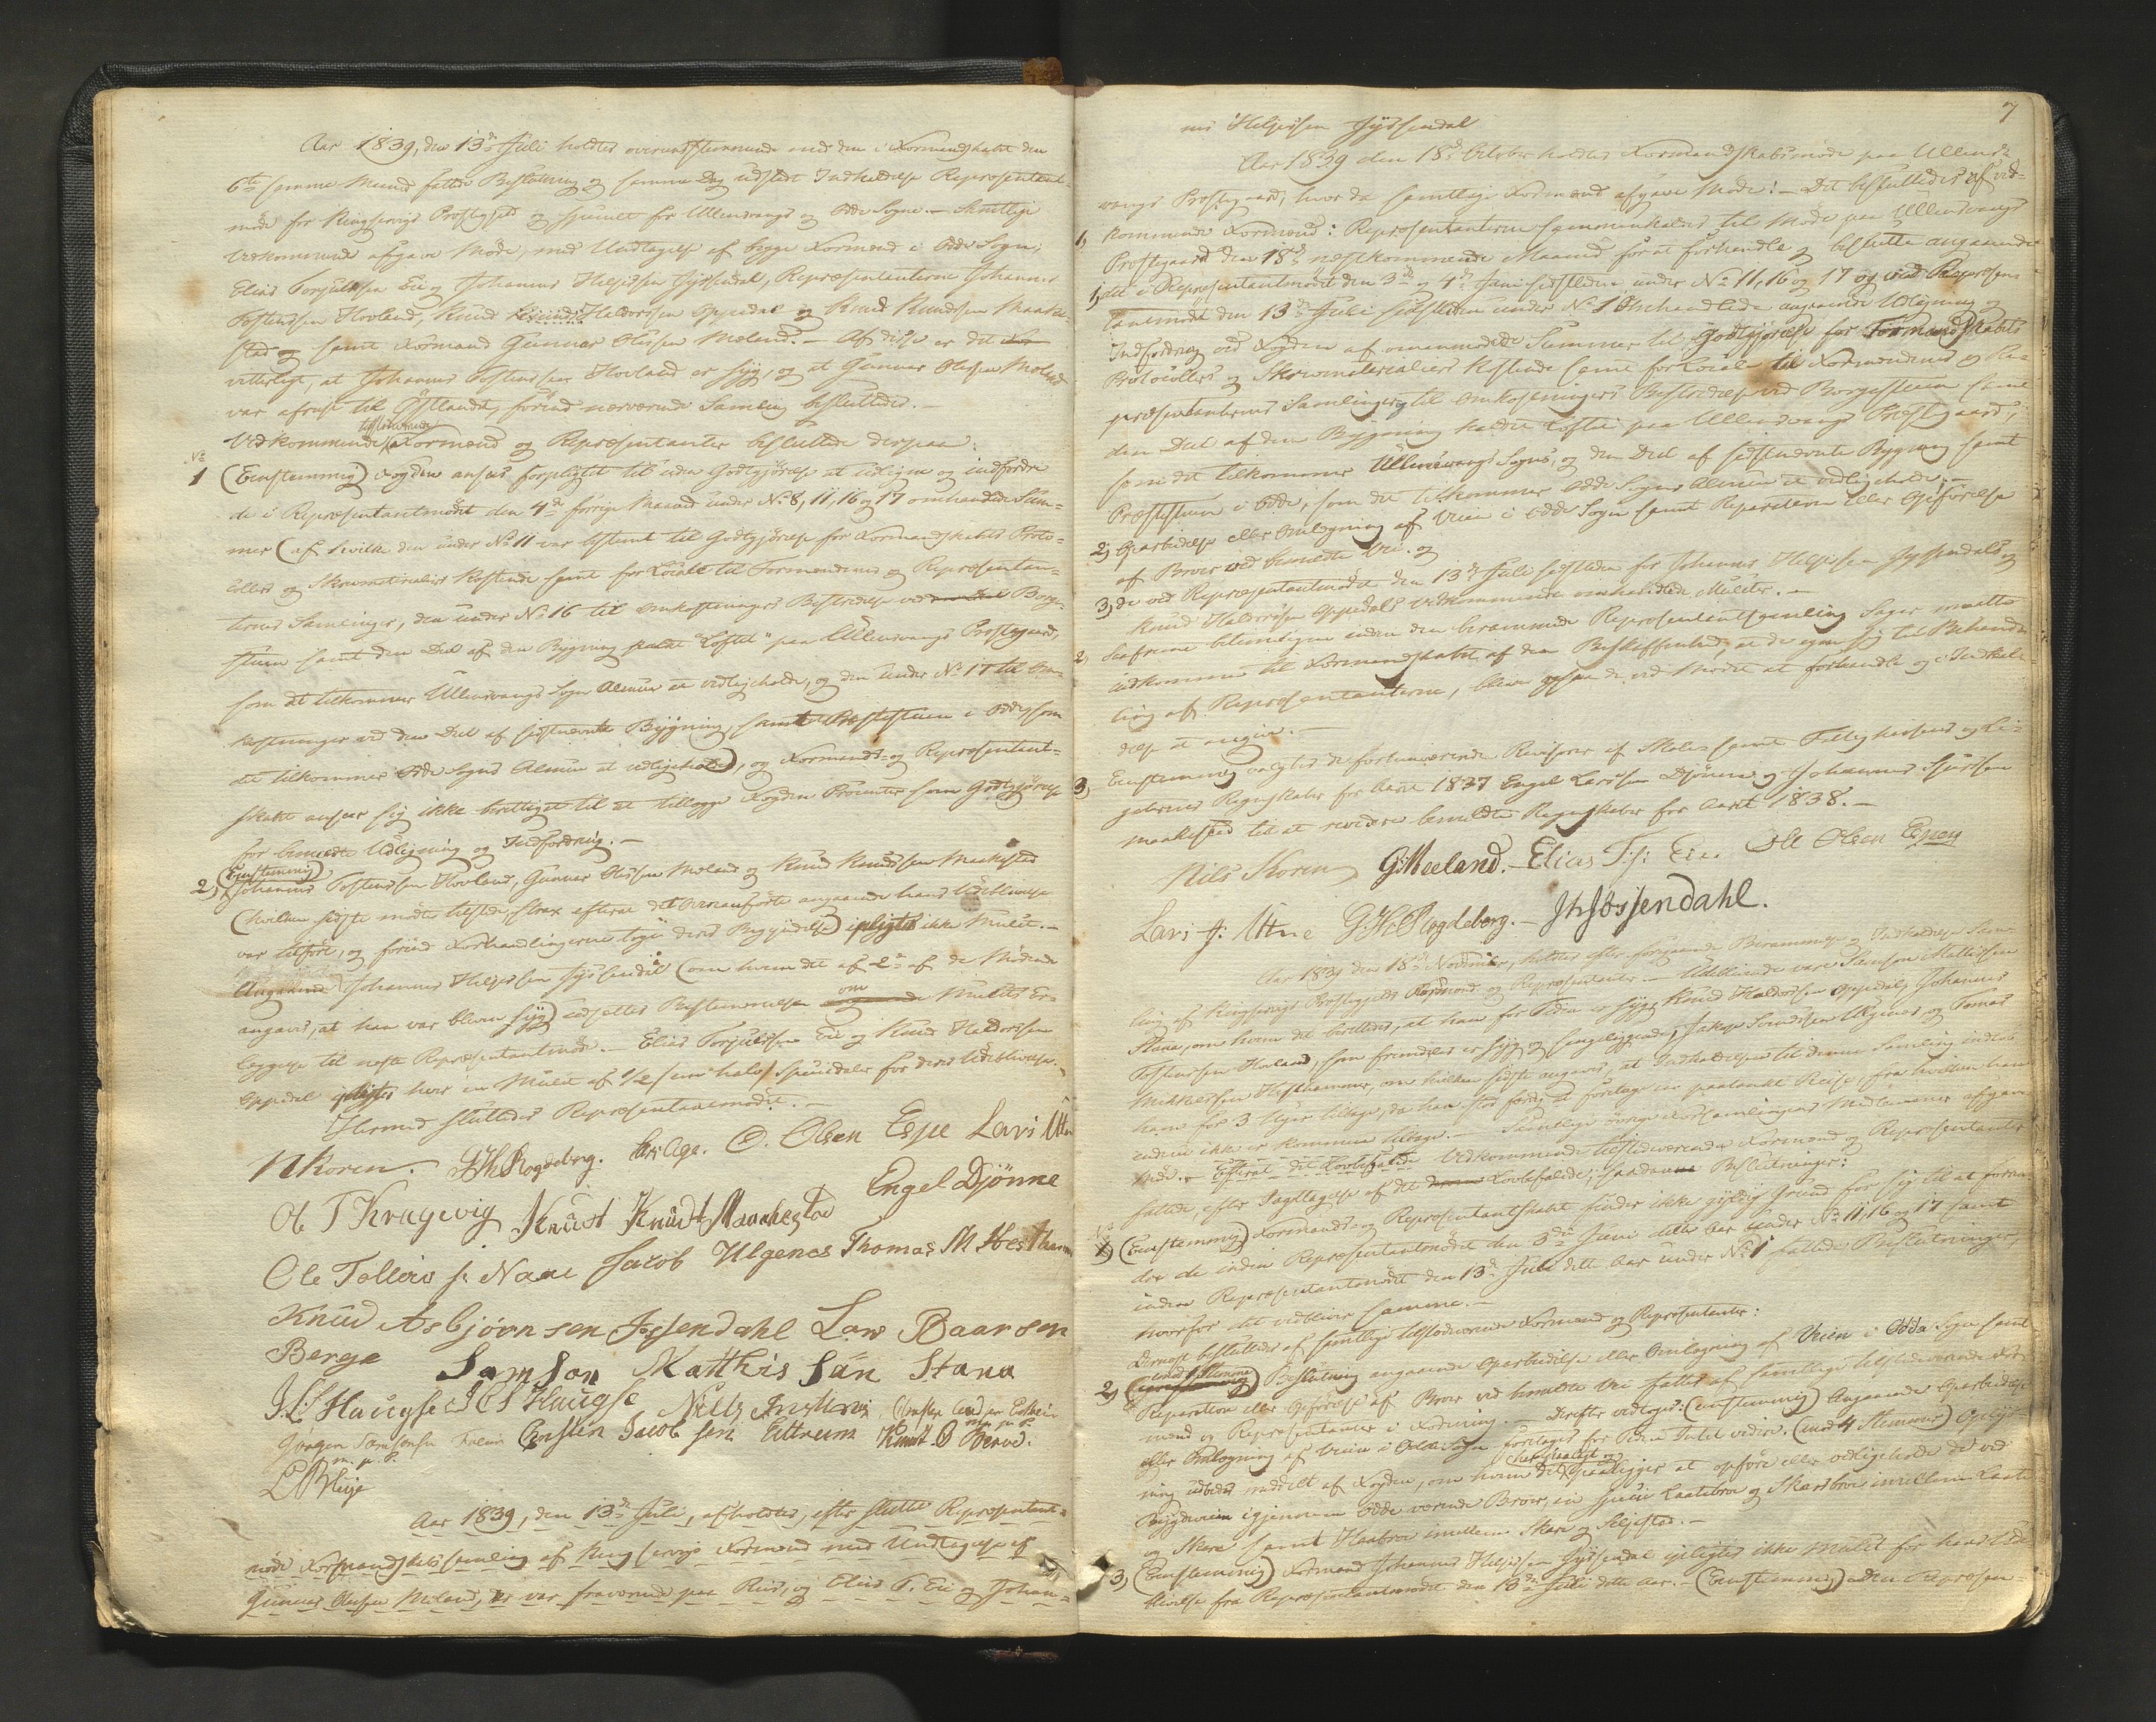 Aar 1839, den 13de Juli holdtes overensstemmende med den i Formandskabet den
6te samme Maaned fattede Beslutning og samme Dag udstedte Indkaldelse Repræsentant-
møde for Kingservigs Præstegjeld og specielt for Ullensvangs og Odde Sogne. – Samtlige
Vedkommende afgave Møde, med Undtagelse af begge Formænd i Odde Sogn,
Elias Torjulssen Eie og Johannes Heljessen Jøssendal, Repræsentanterne Johannes
Tostensen Hovland, Knud Haldorssen Oppedal og Knud Knudssen Maake-
stad og samt Formand Gunnar Olessen Meland. – Af disse er det
vitterligt, at Johannes Tostenssen Hovland er syg, og at Gunnar Olessen Meland
var afreist til Østlandet, førend nærværende Samling besluttedes. –
Vedkommende tilstedeværende Formænd og Repræsentanter besluttede derpaa:
No 1 (Eenstemmig) Fogden ansees forpligtet til uden Godtgjørelse at udligne og indfordre
de i Repræsentantmødet den 4de forrige Maaned under No 8, 11, 16 og 17 omhandlede Sum-
mer (af hvilke den under No 11 var bestemt til Godtgjørelse for Formandskabets Proto-
collers og Skrivmaterialiers Kostende samt for Locale til Formændenes og Repræsentan-
ternes Samlinger, den under No 16 til Omkostningers Bestridelse ved Borge-
stuen samt den Deel af den Bygning kaldet "Loftet" paa Ullensvangs Præstegaard,
som det tilkommer Ullensvangs Sogns Almue at vedligeholde, og den under No 17 til Om-
kostninger ved den Deel af sidstnævnte Bygning, samt Præstestuen i Odde, som
det tilkommer Odde Sogns Almue at vedligeholde), og Formands- og Repræsentant-
skabet ansees sig ikke berettiget til at tillægge Fogden Procenter som Godtgjørelse
for bemeldte Udligning og Indfordring. –
2) (Eenstemmig) Johannes Tostenssen Hovland, Gunnar Olessen Meland og Knud Knudssen Maakestad
(hvilken sidste mødte tilstede, strax efterat det ovenanførte angaaende hans Udeblivelse
var tilført, og førend Forhandlingerne toge deres Begyndelse) ipligtes ikke Mulct. –
Angaaende Johannes Heljessen Jøssendal (om hvem det af 2de af de Mødende
angaves, at han var bleven syg) udsættes Bestemmelsen om Mulcts Er-
læggelse til næste Repræsentantmøde. – Elias Torjulssen Eie og Knud Haldorssen
Oppedal ipligtes hver en Mulct af 1/2 /: een halv :/ Speciedaler for deres Udeblivelse.
Hermed sluttedes Repræsentantmødet. –
NKoren. G.H.Rogdeberg. O. Olsen Espe Lars Utne
Ol T Kragevig Knudt Knudt Maakestad Engel Djønne
Ole Tolleivs s. Naae Jacob Ulgenes Thomas M Hesthamm
Knud Asbjørnsen Jøssendahl Lars Baarsen
Berge Samson Matthis Sän Stana
J.L.S Haugse
Jørgen Samsonsen Freim Censten Jacob sen Eitreim Knudt O Berve.
m. p. P.
Aar 1839, den 13de Juli, afholdtes, efter sluttet Repræsentant-
møde Formandskabssamling af Kingservigs Formænd med Undtagelse af
Gunnar Olessen Meland, der var fraværende paa Reise, og Elias T. Eie og Johan-
7
nes Heljessen Jøssendal
Aar 1839 den 18de October holdtes Formandskabsmøde paa Ullens-
vangs Præstegaard, hvor da samtlige Formænd afgave Møde: – Det besluttedes af ved-
1) kommende Formænd: Repræsentanterne sammenkaldes til Møde paa Ullensvangs
Præstegaard den 18de næstkommende Maaned for at forhandle og beslutte angaaende
1) det i Repræsentantmødet den 3de og 4de Juni sidstleden under No 11, 16 og 17 og ved Repræsen-
tantmødet den 13de Juli sidstleden under No 1 Omhandlede angaaende Udligning og
Indfordring ved Fogden af ommeldte Summer til Godtgjørelse for Formandskabets
Protocollers og Skrivmaterialiers Kostende samt for Locale til Formændenes og Re-
præsentanternes Samlinger og til Omkostningers Bestridelse ved Borgestuen samt
den Deel af den Bygning kaldet Loftet paa Ullensvangs Præstegaard,
som det tilkommer Ullensvangs Sogns, og den Deel af sidstnævnte Bygning samt
Præstestuen i Odde, som det tilkommer Odde Sogns Almue at vedligeholde. –
2) Oparbeidelse eller Omlægning af Veien i Odde Sogn samt Reparation eller Opførelse
af Broer ved bemeldte Vei. og
3) de ved Repræsentantmødet den 13de Juli sidstleden for Johannes Heljessen Jøssendals og
Knud Haldorssen Oppedals Vedkommende omhandlede Mulcter. –
2) Saafremt betimeligen inden den berammede Repræsentantsamling Sager maatte
indkomme til Formandskabet af den Beskaffenhed at de egne sig til Behand-
ling af Repræsentanterne, blive ogsaa de ved Mødet at forhandle og i Indkal-
delse at angive. –
3) Eenstemmig valgtes de forhenværende Revisorer af Skole- samt Fattigkassens og Li-
gebrenes Regnskaber for Aaret 1837 Engel Larssen Djønne og Johannes Sjurssen
Maakestad til at revidere bemeldte Regnskaber for Aaret 1838. –
Nils Koren G. Meeland. Elias T. s. Eie. Ole Olsen Espen
Lars J. Utne G. H. Rogdeberg. – J H Jøssendahl.
Aar 1839 den 18de November, holdtes efter foregaaende Berammelse og Indkaldelse Sam-
ling af Kingservigs Præstegjelds Formænd og Repræsentanter. – Udeblivende vare Samson Matthissen
Stana, om hvem det berettedes, at han for Tiden er syg, Knud Haldorssen Oppedal, Johannes
Tostenssen Hovland, som fremdeles er syg og sengeliggende, Jakop Svendssen Ulgenes og Tomas
Mikkelssen Hesthammer, om hvilken sidste angaves, at Indkaldelsen til denne Samling indløb
ham for 3 Uger tilbage, da han stod færdig at foretage en paatænkt Reise, fra hvilken han
endnu ikke er kommen tilbage. – Samtlige øvrige Forsamlingens Medlemmer afgave
Møde. – Efterat det Lovbefalede Vedkommende tilstedeværende Formænd og Repræsentanter
fattede, efter Iagttagelse af det Lovbefalede, saadanne Beslutninger:
No 1) (Eenstemmig) Formands- og Repræsentantskabet finder ikke gyldig Grund for sig til at foran-
dre de inden Repræsentantmødet den 3de Juni dette Aar under No 11, 16 og 17 samt
inden Repræsentantmødet den 13de Juli dette Aar under No 1 fattede Beslutninger,
hvorfor det vedbliver samme. –
Dernæst besluttedes af samtlige tilstedeværende Formænd og Repræsentanter:
2) Beslutning angaaende Oparbeidelse eller Omlægning af Veien i Odda Sogn samt
Reparation eller Opførelse af Broer ved bemeldte Vei fattes af samtlige tilstedeværende For-
mænd og Repræsentanter i Forening. – Derefter vedtoges: (eenstemmig) Angaaende Oparbeidelse
eller Omlægning af Veien i Odde Sogn foretages for Tiden Intet videre. (med 4 Stemmer) Oplys-
ning udbedes meddelt af Fogden, om hvem det paaligger at opføre eller vedligeholde de ved
Bygdeveien igjennem Odde værende Broer, in specie Laatebroe og Skarsbroe imellem Laate
og Skare samt Haabroe imellem Skare og Seljestad. –
3) (Eenstemmig) Formand Johannes Heljessen Jøssendal ipligtes ikke Mulct for hans Ude-
blivelse fra Repræsentantmødet den 13de Juli dette Aar. – (Eenstemmig) Den i Repræsen-